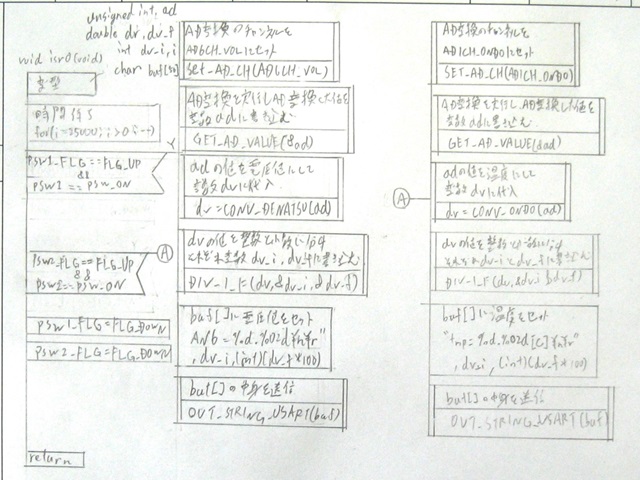 unsigned int, ad
double dv, dv_f
int dv_i, i
char buf[50]
void isr0(void)
変型
時間待ち
for(i=25000; i>0; i--)
PSW1_FLG==FLG_UP
&&
PSW1 == PSW_ON
Y
PSW2_FLG==FLG_UP
&&
PSW2==PSW_ON
A
PSW1_FLG=FLG_DOWN
PSW2_FLG=FLG_DOWN
return
AD変換のチャンネルを
AD6CH_VOLにセット
Set_AD_CH(AD6CH_VOL)
AD変換を実行しAD変換した値を
変数adに書き込む
GET_AD_VALUE(&ad)
adの値を電圧値にして
変数dvに代入
dv=CONV_DENATSU(ad)
dvの値を整数と小数に分け
それぞれ変数dv_i, dv_fに書き込む
DIV_I_F(dv,&dv_i,&dv_f)
buf[]に電圧値をセット
AN6=%d.%02d¥n¥r"
, dv_i,(int)(dv_f*100)
buf[]の中身を送信
OUT_STRING_USART(buf)
AD変換のチャンネルを
AD1CH_ONDOにセット
SET_AD_CH(AD1CH_ONDO)
AD変換を実行しAD変換した値を
変数adに書き込む
GET_AD_VALUE(&ad)
A
adの値を温度にして
変数dvに代入
dv=CONV_ONDO(ad)
dvの値を整数と小数に分け
DIV_I_F(dv,&dv_i,&dv_f)
buf[]に温度をセット
"tmp=%d.%02d[C]¥n¥r"
, dv_i, (int)(dv_f*100)
buf[]の中身を送信
OUT_STRING_USART(buf)